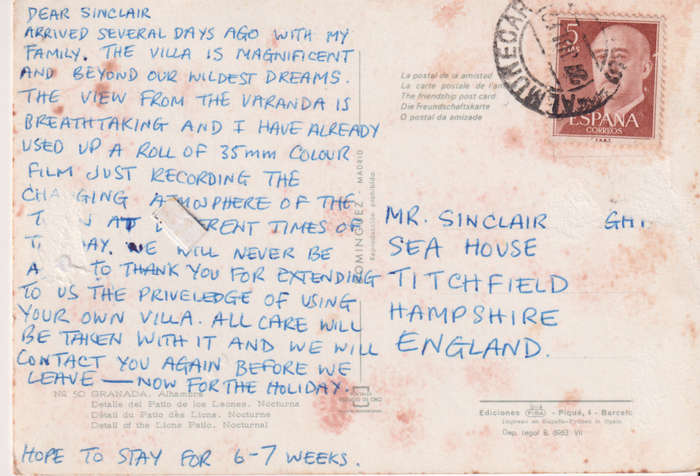 DEAR SINCLAIR
ARRIVED SEVERAL DAYS AGO WITH MY
FAMILY. THE VILLA IS MAGNIFICENT
AND BEYOND OUR WILDEST DREAMS.
THE VIEW FROM THE VARANDA IS
BREATHTAKING AND I HAVE ALREADY
USED UP A ROLL OF 35mm COLOUR
FILM JUST RECORDING THE
CHANGING ATMOSPHERE OF THE
AT TIMES OF
WE WILL NEVER BE
TO THANK YOU FOR EXTENDING
TO US THE PRIVELEDGE OF USING
YOUR OWN VILLA. ALL CARE WILL
BE TAKEN WITH IT AND WE WILL
CONTACT YOU AGAIN BEFORE WE
LEAVE — NOW FOR THE HOLIDAY.
Nº 50 GRANADA. Alhambra
Detalle del Patio de los Leones. Nocturna
Détail du Patio dès Lions. Nocturne
Detail of the Lions Patio. Nocturnal
HOPE TO STAY FOR 6-7 WEEKS.
DOMINGUEZ - MADRID
Reproducción prohibida
La postal de la amistad
La carte postale de
The friendship post card
Die Freundschaftskarte
O postal da amizade
ALMUÑECAR
5
PTS
ESPAÑA
CORREOS
MR. SINCLAIR
SEA HOUSE
TITCHFIELD
HAMPSHIRE
ENGLAND.
Ediciones FISA - Piqué, 4 -
Impreso en España-Printed in Spain
Dep. legal B. 6963 VII